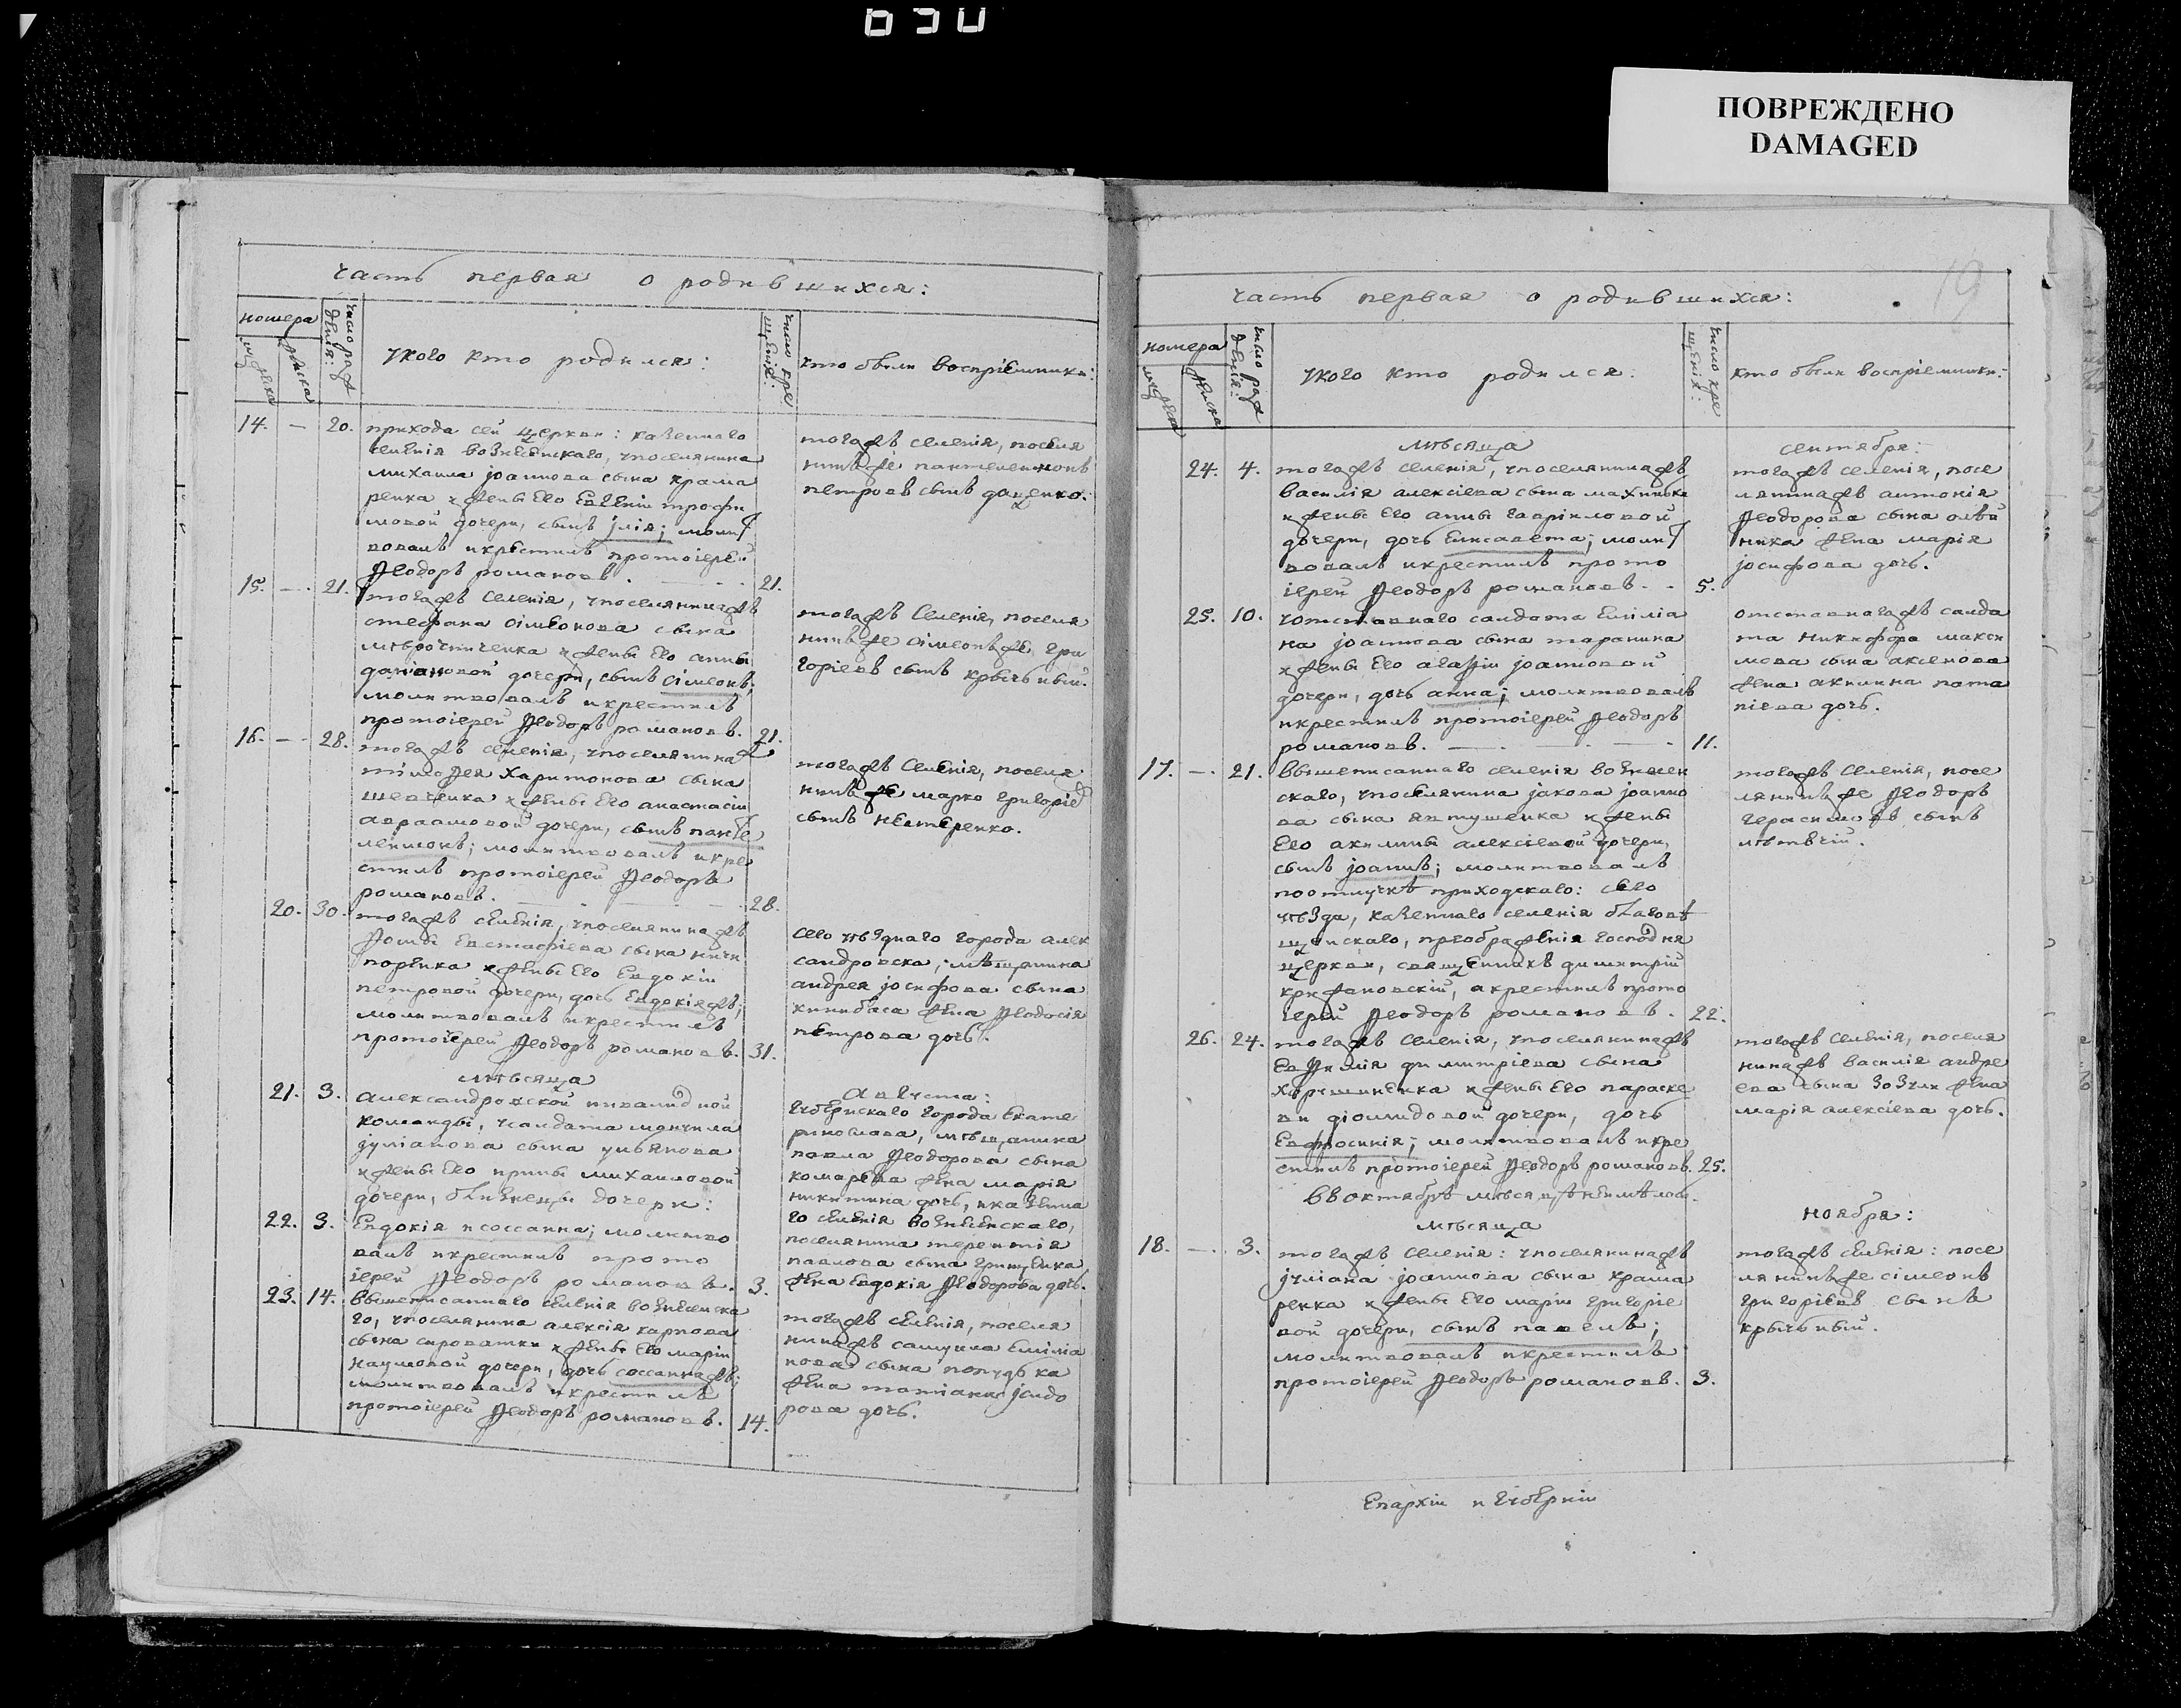 ПОВРЕЖДЕНО
DAMAGED
19
часть первая о родившихся:
номера
мужеска
женска
число рождения:
укого кто родился:
число крещения:
кто были восприемники:
14. — 20.
прихода сей церкви: казеннаго
селенія вознесенскаго, упоселянина
михаила іоаннова сына крама
ренка и жены его Евгеніи трофи
мовой дочери, сынъ илія; молит
вовалъ икрестилъ протоіерей
Ѳеодоръ романовъ. 21.
тогожъ селенія, поселя
нинъ же пантелеимонъ
петровъ сынъ доценко.
15. — 21.
тогожъ селенія, упоселянинажъ
стефана сімеонова сына
мирошниченка и жены его анны
даміановой дочери, сынъ сімеонъ;
молитвовалъ икрестилъ
протоіерей Ѳеодоръ романовъ. 21.
тогожъ селенія, поселя
нинъ же сімеонъ же, гри
горіевъ сынъ крычъвый.
16. — 28.
тогожъ селенія, упоселянинаж
тімоѳея харитонова сына
шевченка и жены его анастасіи
авраамовой дочери, сынъ панте
леимонъ; молитвовалъ икре
стилъ протоіерей Ѳеодоръ
романовъ. 28.
тогожъ селенія, поселя
нинъ же марко григоріев
сынъ нестеренко.
20. 30.
тогожъ селенія, упоселянинажъ
Ѳомы Евстафіева сына ничи
поренка и жены его Евдокіи
петровой дочери, дочь Евдокіяжъ;
молитвовалъ икрестилъ
протоіерей Ѳеодоръ романовъ. 31.
сего уѣзднаго города алек
сандровска, мѣщанина
андрея іосифова сына
кинибаса жена Ѳеодосія
петрова дочь.
мѣсяца августа:
21. 3.
александровской инвалидной
команды, усалдата мануила
іуліанова сына ульянова
и жены его ирины михаиловой
дочери, близнецы дочери:
22. 3.
Евдокія исоссанна; молитво
валъ икрестилъ прото
іерей Ѳеодоръ романовъ. 3.
губернскаго города Екате
ринослава, мѣщанина
павла Ѳеодорова сына
комарева жена марія
никитина дочь, иказенна
го селенія вознесенскаго,
поселянина терентія
павлова сына грищенка
жена Евдокія Ѳеодорова дочь.
23. 14.
вышеписаннаго селенія вознесенска
го, упоселянина алексія карпова
сына сироватки и жены его маріи
наумовой дочери, дочь соссаннажъ;
молитвовалъ икрестилъ
протоіерей Ѳеодоръ романовъ. 14.
тогожъ селенія, поселя
нинажъ самуила Емиліа
нова сына попудька
жена татіана ісидо
рова дочь.
часть первая о родившихся:
номера
мужеска
женска
число рождения:
укого кто родился:
число крещенія:
кто были восприемники:
мѣсяца сентября:
24. 4.
тогожъ селенія, упоселянинажъ
василія алексіева сына махинька
и жены его анны гавріиловой
дочери, дочь Елисавета; молит
вовалъ икрестилъ прото
іерей Ѳеодоръ романовъ. 5.
тогожъ селенія, посе
лянинажъ антонія
Ѳеодорова сына олѣй
ника жена марія
іосифова дочь.
25. 10.
уотставнаго салдата Емиліа
на іоаннова сына таранина
и жены его агаѳіи іоанновой
дочери, дочь анна; молитвовалъ
икрестилъ протоіерей Ѳеодоръ
романовъ. 11.
отставнагожъ салда
та никифора макси
мова сына аксенова
жена акилина пота
піева дочь.
17. — 21.
вышеписаннаго селенія вознесен
скаго, упоселянина іакова іоанно
ва сына явтушенка и жены
его акилины алексіевой дочери,
сынъ іоаннъ; молитвовалъ
поотлучкѣ приходскаго: сего
уѣзда, казеннаго селенія благовѣ
щенскаго, преображенія господня
церкви, священникъ димитрій
крижановскій, акрестилъ прото
іерей Ѳеодоръ романовъ. 22.
тогожъ селенія, посе
лянинъ же Ѳеодоръ
герасимовъ сынъ
26. 24.
тогожъ селенія, упоселянинажъ
Евѳимія димитріева сына
хорушиненка и жены его параске
ви діомидовой дочери, дочь
Евфросинія; молитвовалъ икре
стилъ протоіерей Ѳеодоръ романовъ. 25.
тогожъ селенія, поселя
нинажъ василія андре
ева сына зозули жена
марія алексіева дочь.
ввоктябрѣ мѣсяцѣ неимѣлось.
мѣсяца ноября:
18. — 3.
тогожъ селенія: упоселянинажъ
іуліана іоаннова сына крама
ренка и жены его маріи григоріе
вой дочери, сынъ павелъ;
молитвовалъ икрестилъ
протоіерей Ѳеодоръ романовъ. 3.
тогожъ селенія: посе
лянинъ же сімеонъ
григоріевъ сынъ
крычъвый.
Епархіи и губерніи